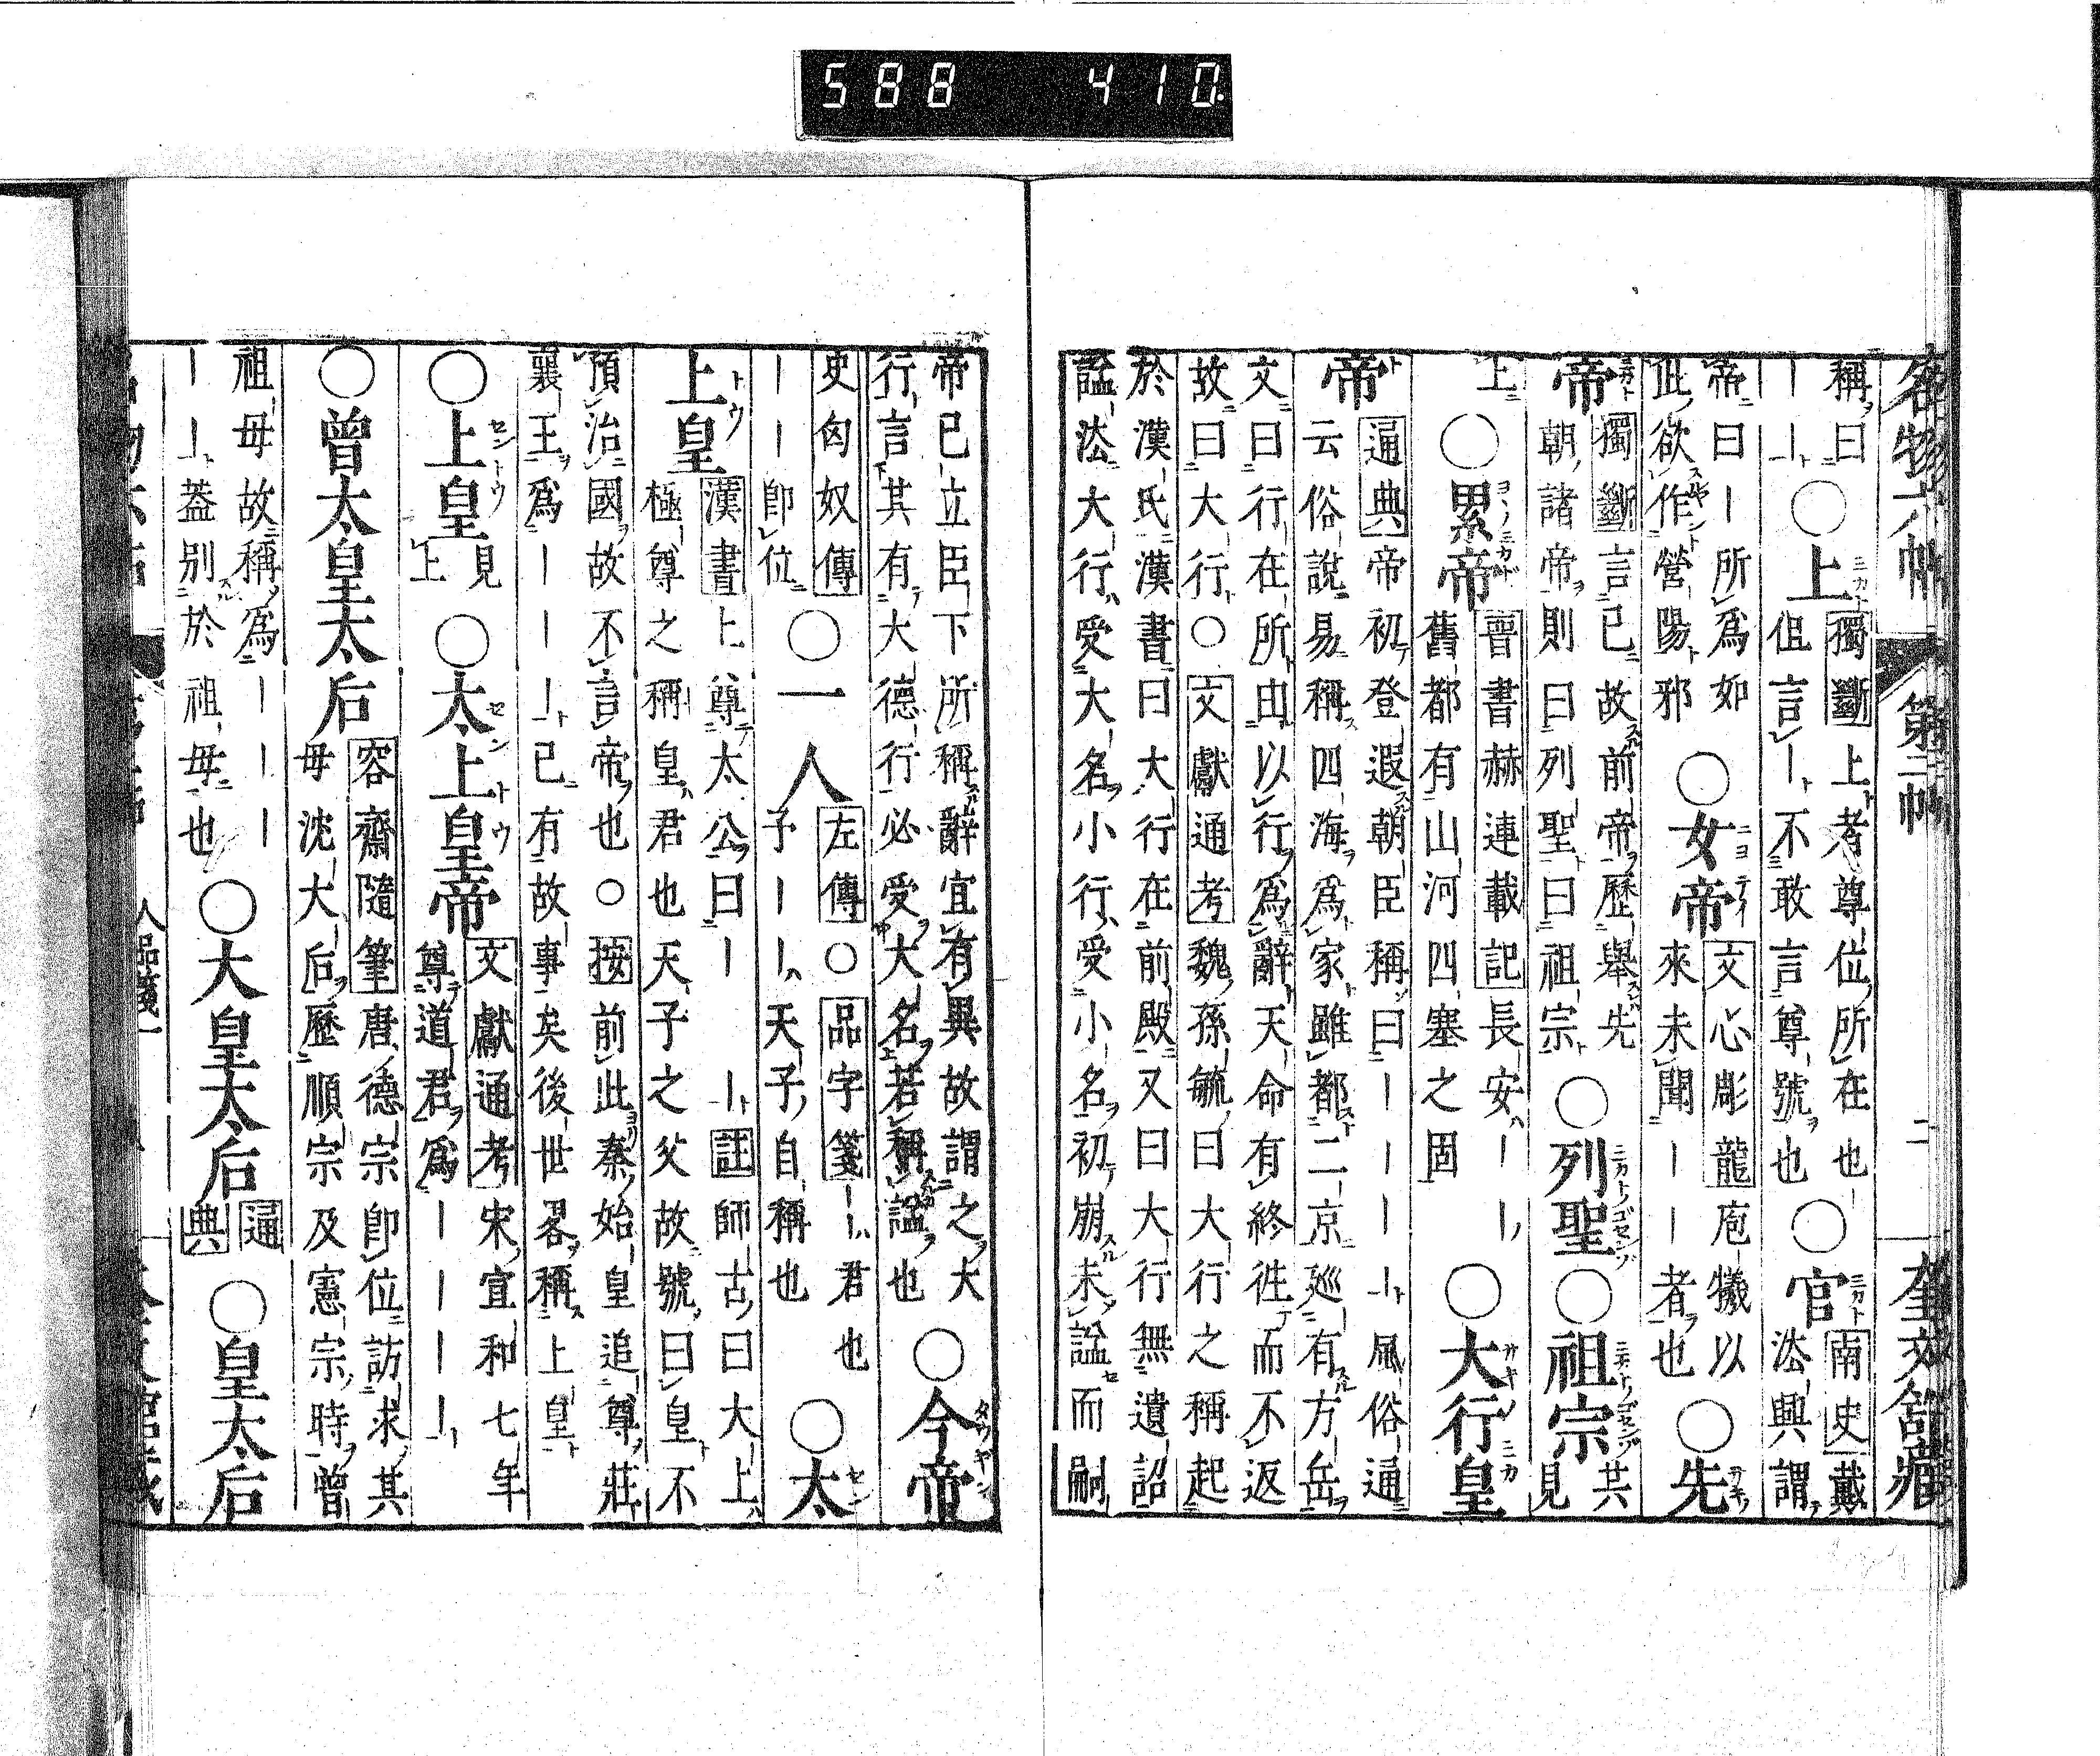 588 410.
名物六帖 第二帖 二 奎文舘藏
稱曰
——○上
獨斷上者尊位所在也
但言—不敢言尊號也
○官
南史戴
法興謂
帝曰—所爲如
此欲作營陽邪
○女帝
文心彫龍庖犧以
來未聞——者也
○先
帝
獨斷言已故前帝歷舉先
朝諸帝則曰列聖曰祖宗
○列聖○祖宗
共
見
上○累帝
晉書赫連載記長安——
舊都有山河四塞之固
○大行皇
帝
通典帝初登遐朝臣稱曰————風俗通
云俗說易稱四海爲家雖都二京廵有方岳
文曰行在所由以行爲辭天命有終徃而不返
故曰大行○文獻通考魏孫毓曰大行之稱起
於漢氏漢書曰大行在前殿又曰大行無遺詔
諡法大行受大名小行受小名初崩未諡而嗣
帝已立臣下所稱辭宜有異故謂之大
行言其有大德行必受大名若稱諡也
○今帝
史匈奴傳
——卽位
○一人
左傳○品字箋——君也
子——天子自稱也
○太
上皇
漢書上尊太公曰——註師古曰大上
極尊之稱皇君也天子之父故號曰皇不
預治國故不言帝也○按前此秦始皇追尊莊
襄王爲———已有故事矣後世畧稱上皇
○上皇
見
上
○太上皇帝
文獻通考宋宣和七年
尊道君爲————
○曾太皇太后
容齋隨筆唐德宗卽位訪求其
母沈大后歷順宗及憲宗時曾
祖母故稱爲———
——蓋別於祖母也
○大皇太后
通
典
○皇太后
人品箋一